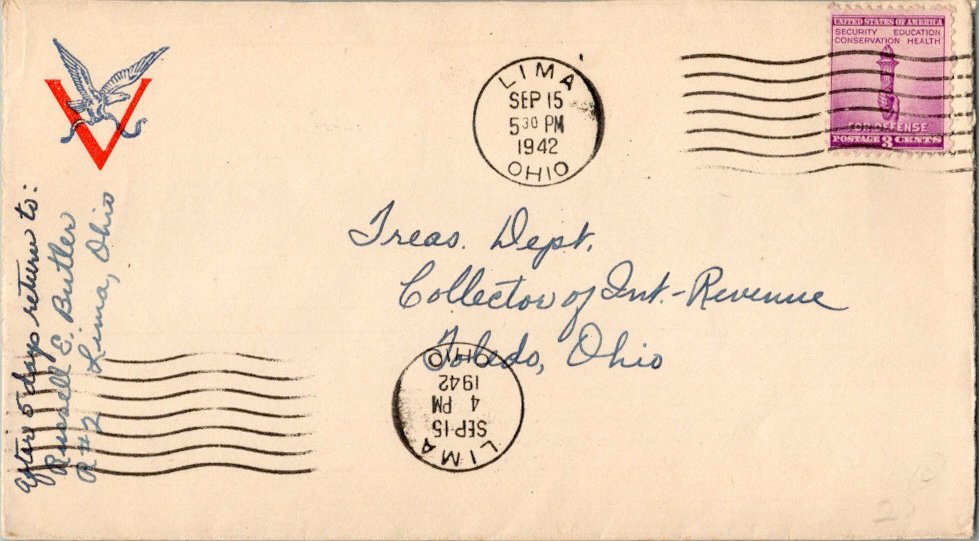 LIMA
SEP 15
5 30 PM
1942
OHIO
UNITED STATES OF AMERICA
SECURITY EDUCATION
CONSERVATION HEALTH
FOR DEFENSE
POSTAGE 3 CENTS
V
After 5 days return to:
Russell E. Butler
R#2 Lima, Ohio
Treas. Dept.
Collector of Int.-Revenue
Toledo, Ohio
LIMA
SEP 15
4 PM
1942
OHIO